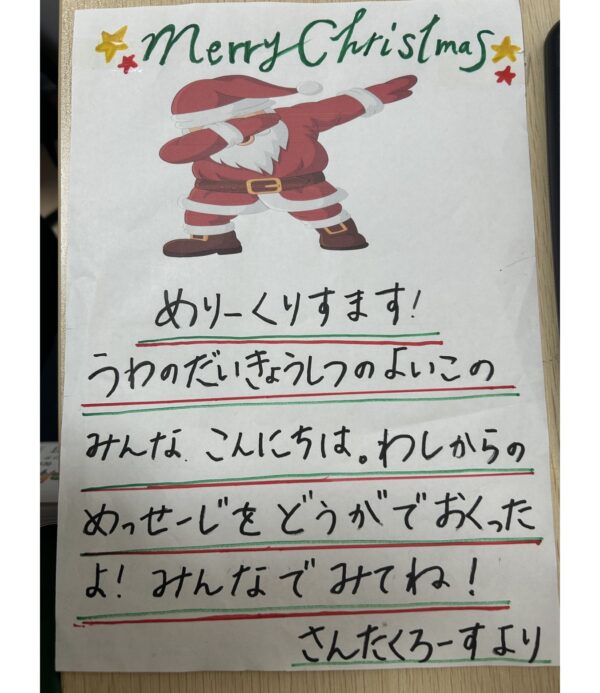 Merry Christmas
めりーくりすます!
うわのだいきょうしつのよいこの
みんな、こんにちは。わしからの
めっせーじをどうがでおくった
よ! みんなでみてね!
さんたくろーすより